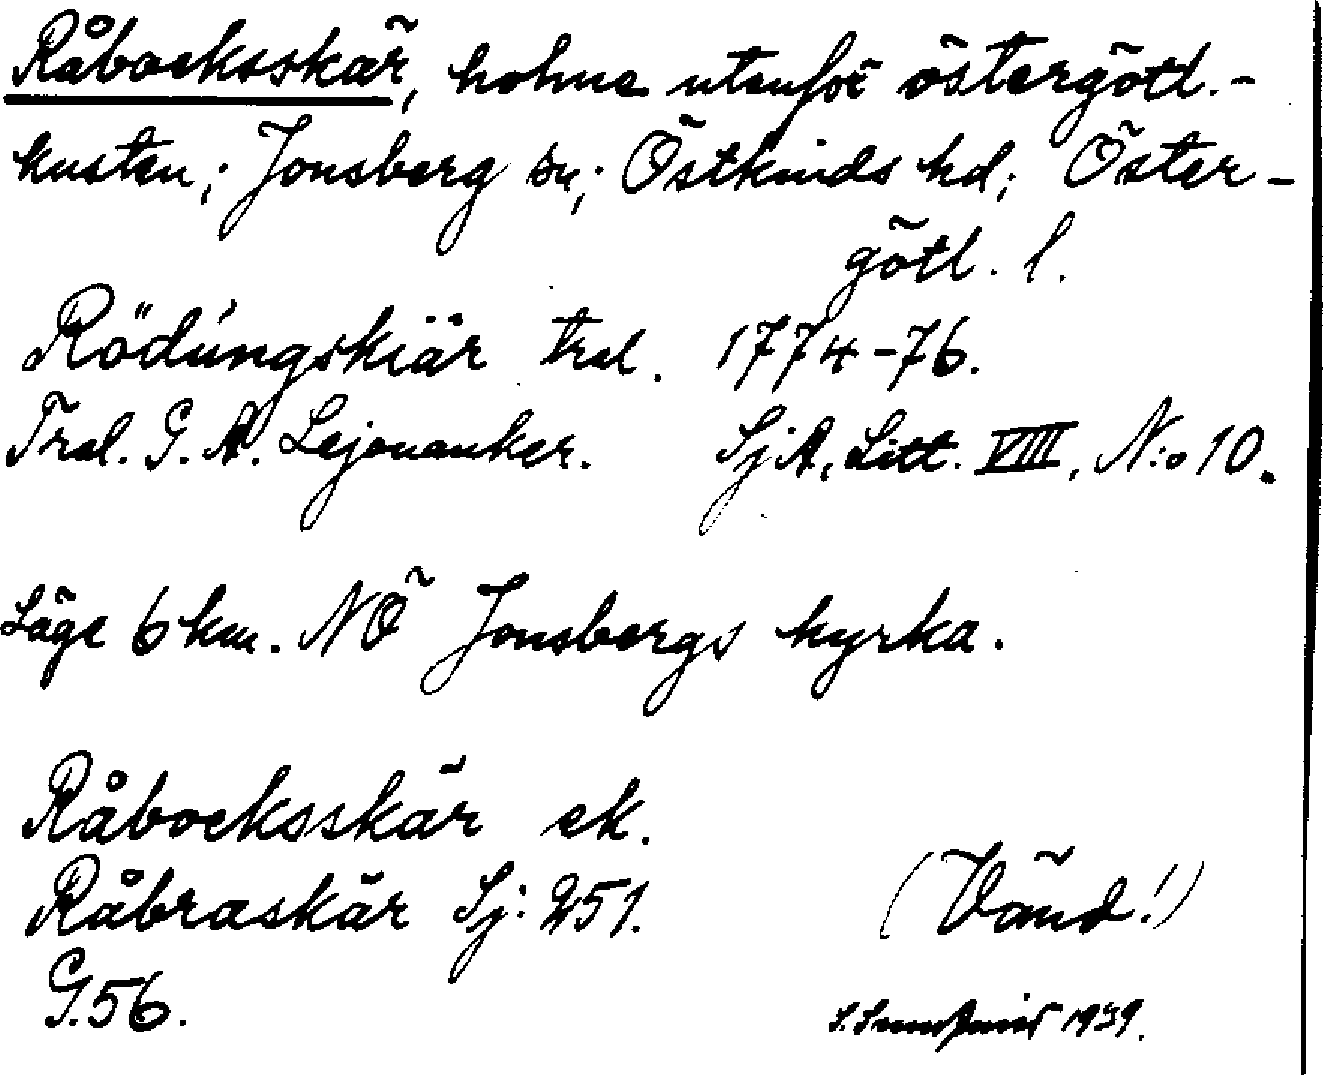 Råbocksskär, holme utanför östergötl.-
kusten; Jonsberg sn; Östkinds hd; Öster-
götl. l.
Rödúngskiär trol. 1774-76.
Trol. G. A. Lejonanker. SjA, Litt. VIII, N:o 10.
Läge 6 km. NÖ Jonsbergs kyrka.
Råbocksskär ek.
Råbraskär Sj: 251. (Vänd!)
G.56.
1939.